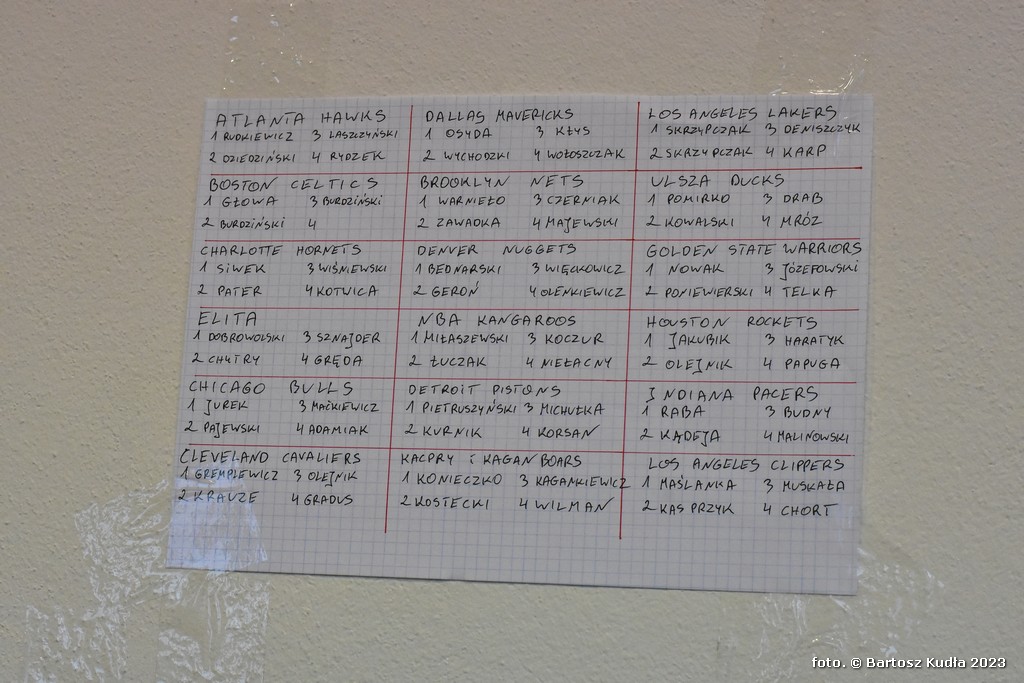 ATLANTA HAWKS
1 RUDKIEWICZ 3 LASZCZYŃSKI
2 DZIEDZIŃSKI 4 RYDZEK
BOSTON CELTICS
1 GŁOWA 3 BURDZIŃSKI
2 BURDZIŃSKI 4
CHARLOTTE HORNETS
1 SIWEK 3 WIŚNIEWSKI
2 PATER 4 KOTWICA
ELITA
1 DOBROWOLSKI 3 SZNAJDER
2 CHYTRY 4 GRĘDA
CHICAGO BULLS
1 JUREK 3 MAĆKIEWICZ
2 PAJEWSKI 4 ADAMIAK
CLEVELAND CAVALIERS
1 GREMPLEWICZ 3 OLEJNIK
2 KRAUZE 4 GRADUS
DALLAS MAVERICKS
1 OSYDA 3 KŁYS
2 WYCHODZKI 4 WOŁOSZCZAK
BROOKLYN NETS
1 WARNIEŁO 3 CZERNIAK
2 ZAWADKA 4 MAJEWSKI
DENVER NUGGETS
1 BEDNARSKI 3 WIĘCKOWICZ
2 GEROŃ 4 OLENKIEWICZ
NBA KANGAROOS
1 MIŁASZEWSKI 3 KOCZUR
2 ŁUCZAK 4 NIEŁACNY
DETROIT PISTONS
1 PIETRUSZYŃSKI 3 MICHUŁKA
2 KURNIK 4 KORSAN
KACPRY i KAGAN BOARS
1 KONIECZKO 3 KAGANKIEWICZ
2 KOSTECKI 4 WILMAN
LOS ANGELES LAKERS
1 SKRZYPCZAK 3 DENISZCZYK
2 SKRZYPCZAK 4 KARP
ULSZA DUCKS
1 POMIRKO 3 DRAB
2 KOWALSKI 4 MRÓZ
GOLDEN STATE WARRIORS
1 NOWAK 3 JÓZEFOWSKI
2 PONIEWIERSKI 4 TELKA
HOUSTON ROCKETS
1 JAKUBIK 3 HARATYK
2 OLEJNIK 4 PAPUGA
INDIANA PACERS
1 RABA 3 BUDNY
2 KĄDEJA 4 MALINOWSKI
LOS ANGELES CLIPPERS
1 MAŚLANKA 3 MUSKAŁA
2 KASPRZYK 4 CHORT
foto. © Bartosz Kudła 2023